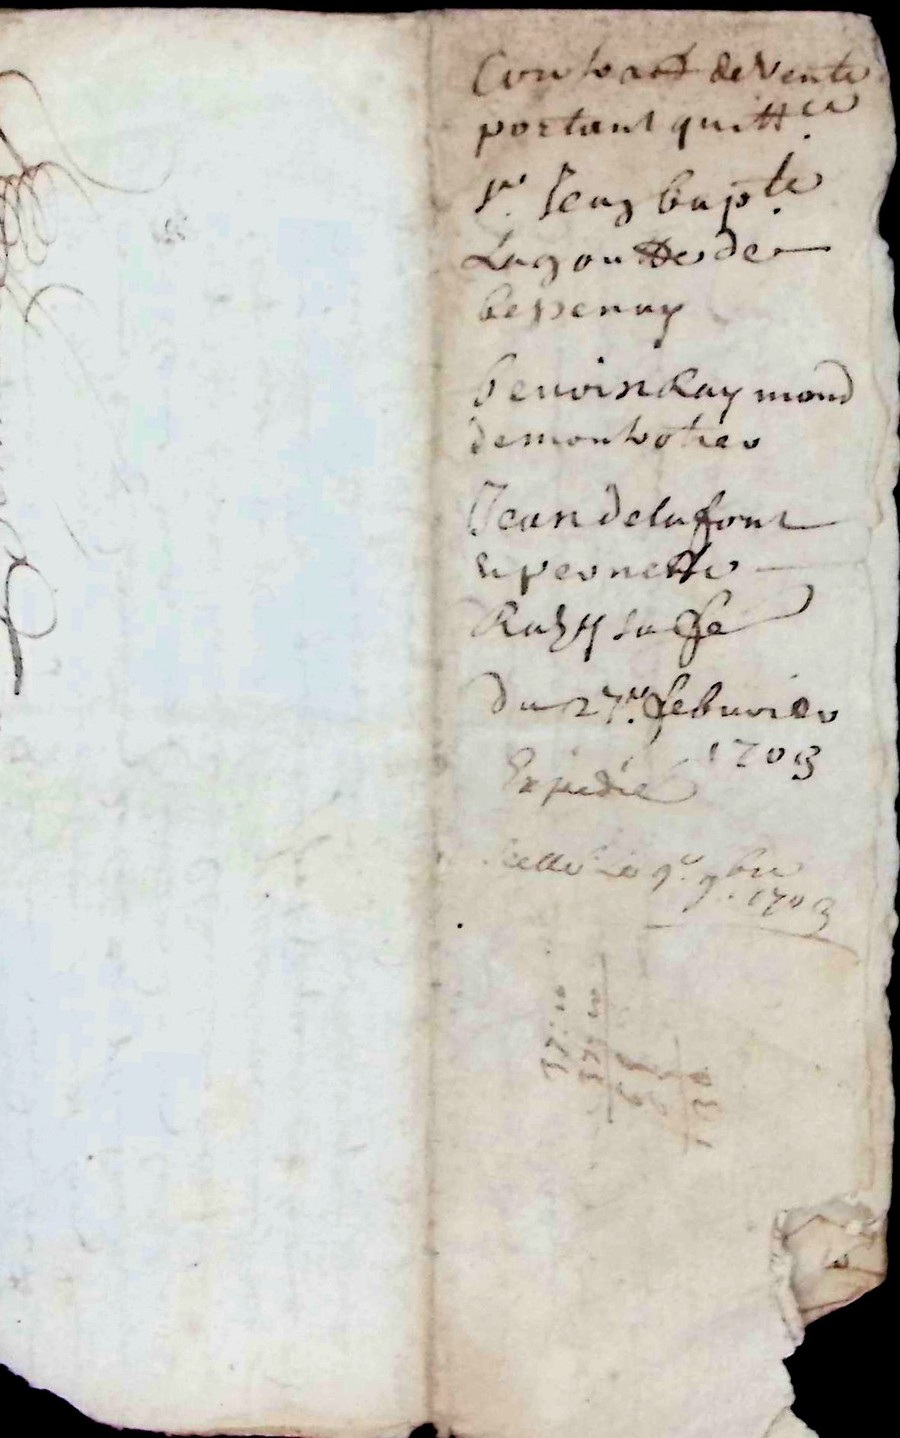 Contract de vente
portant quitt.ce
Sr. Jean bap.te
Lagoutte de
bessenay
benoist Raymond
de montrotier
Jean delafont
et pernette
sa fe
du 27e. febvrier
1703
Expedié
scellé Le 9e. 9bre
1703